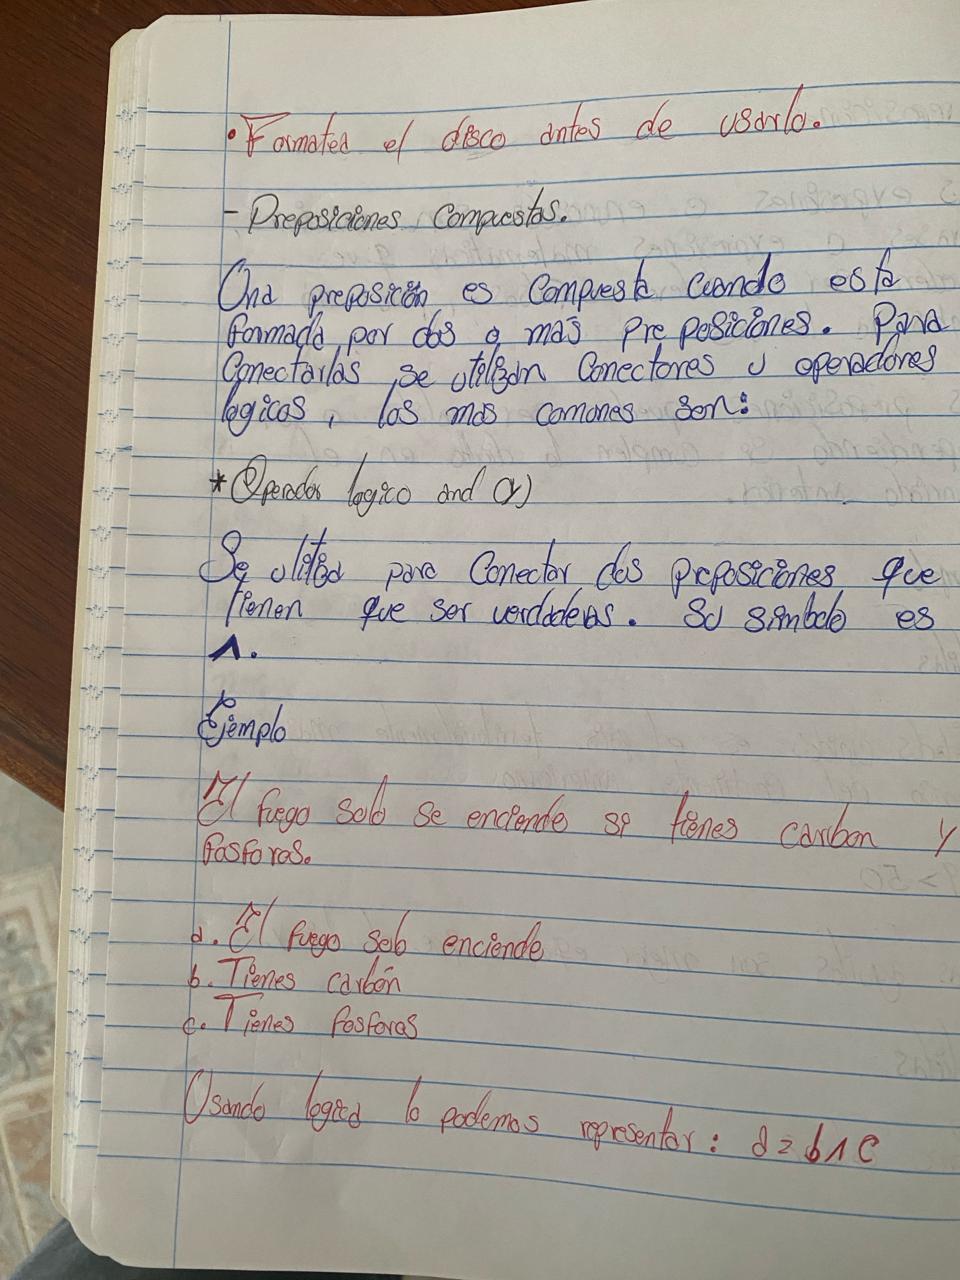 • Formatea el disco antes de usarlo.
- Preposiciones Compuestas.
Una preposición es Compuesta cuando esta
formada por dos o mas preposiciones. Para
Conectarlas, se utilizan Conectores u operadores
logicos, los mas comunes son:
* Operador logico and (y)
Se utiliza para Conectar dos preposiciones que
tienen que ser verdaderas. Su simbolo es
∧.
Ejemplo
El fuego solo se enciende si tienes carbon y
fosforos.
a. El fuego solo enciende
b. Tienes carbón
c. Tienes fosforos
Usando logica lo podemos representar: a = b ∧ c